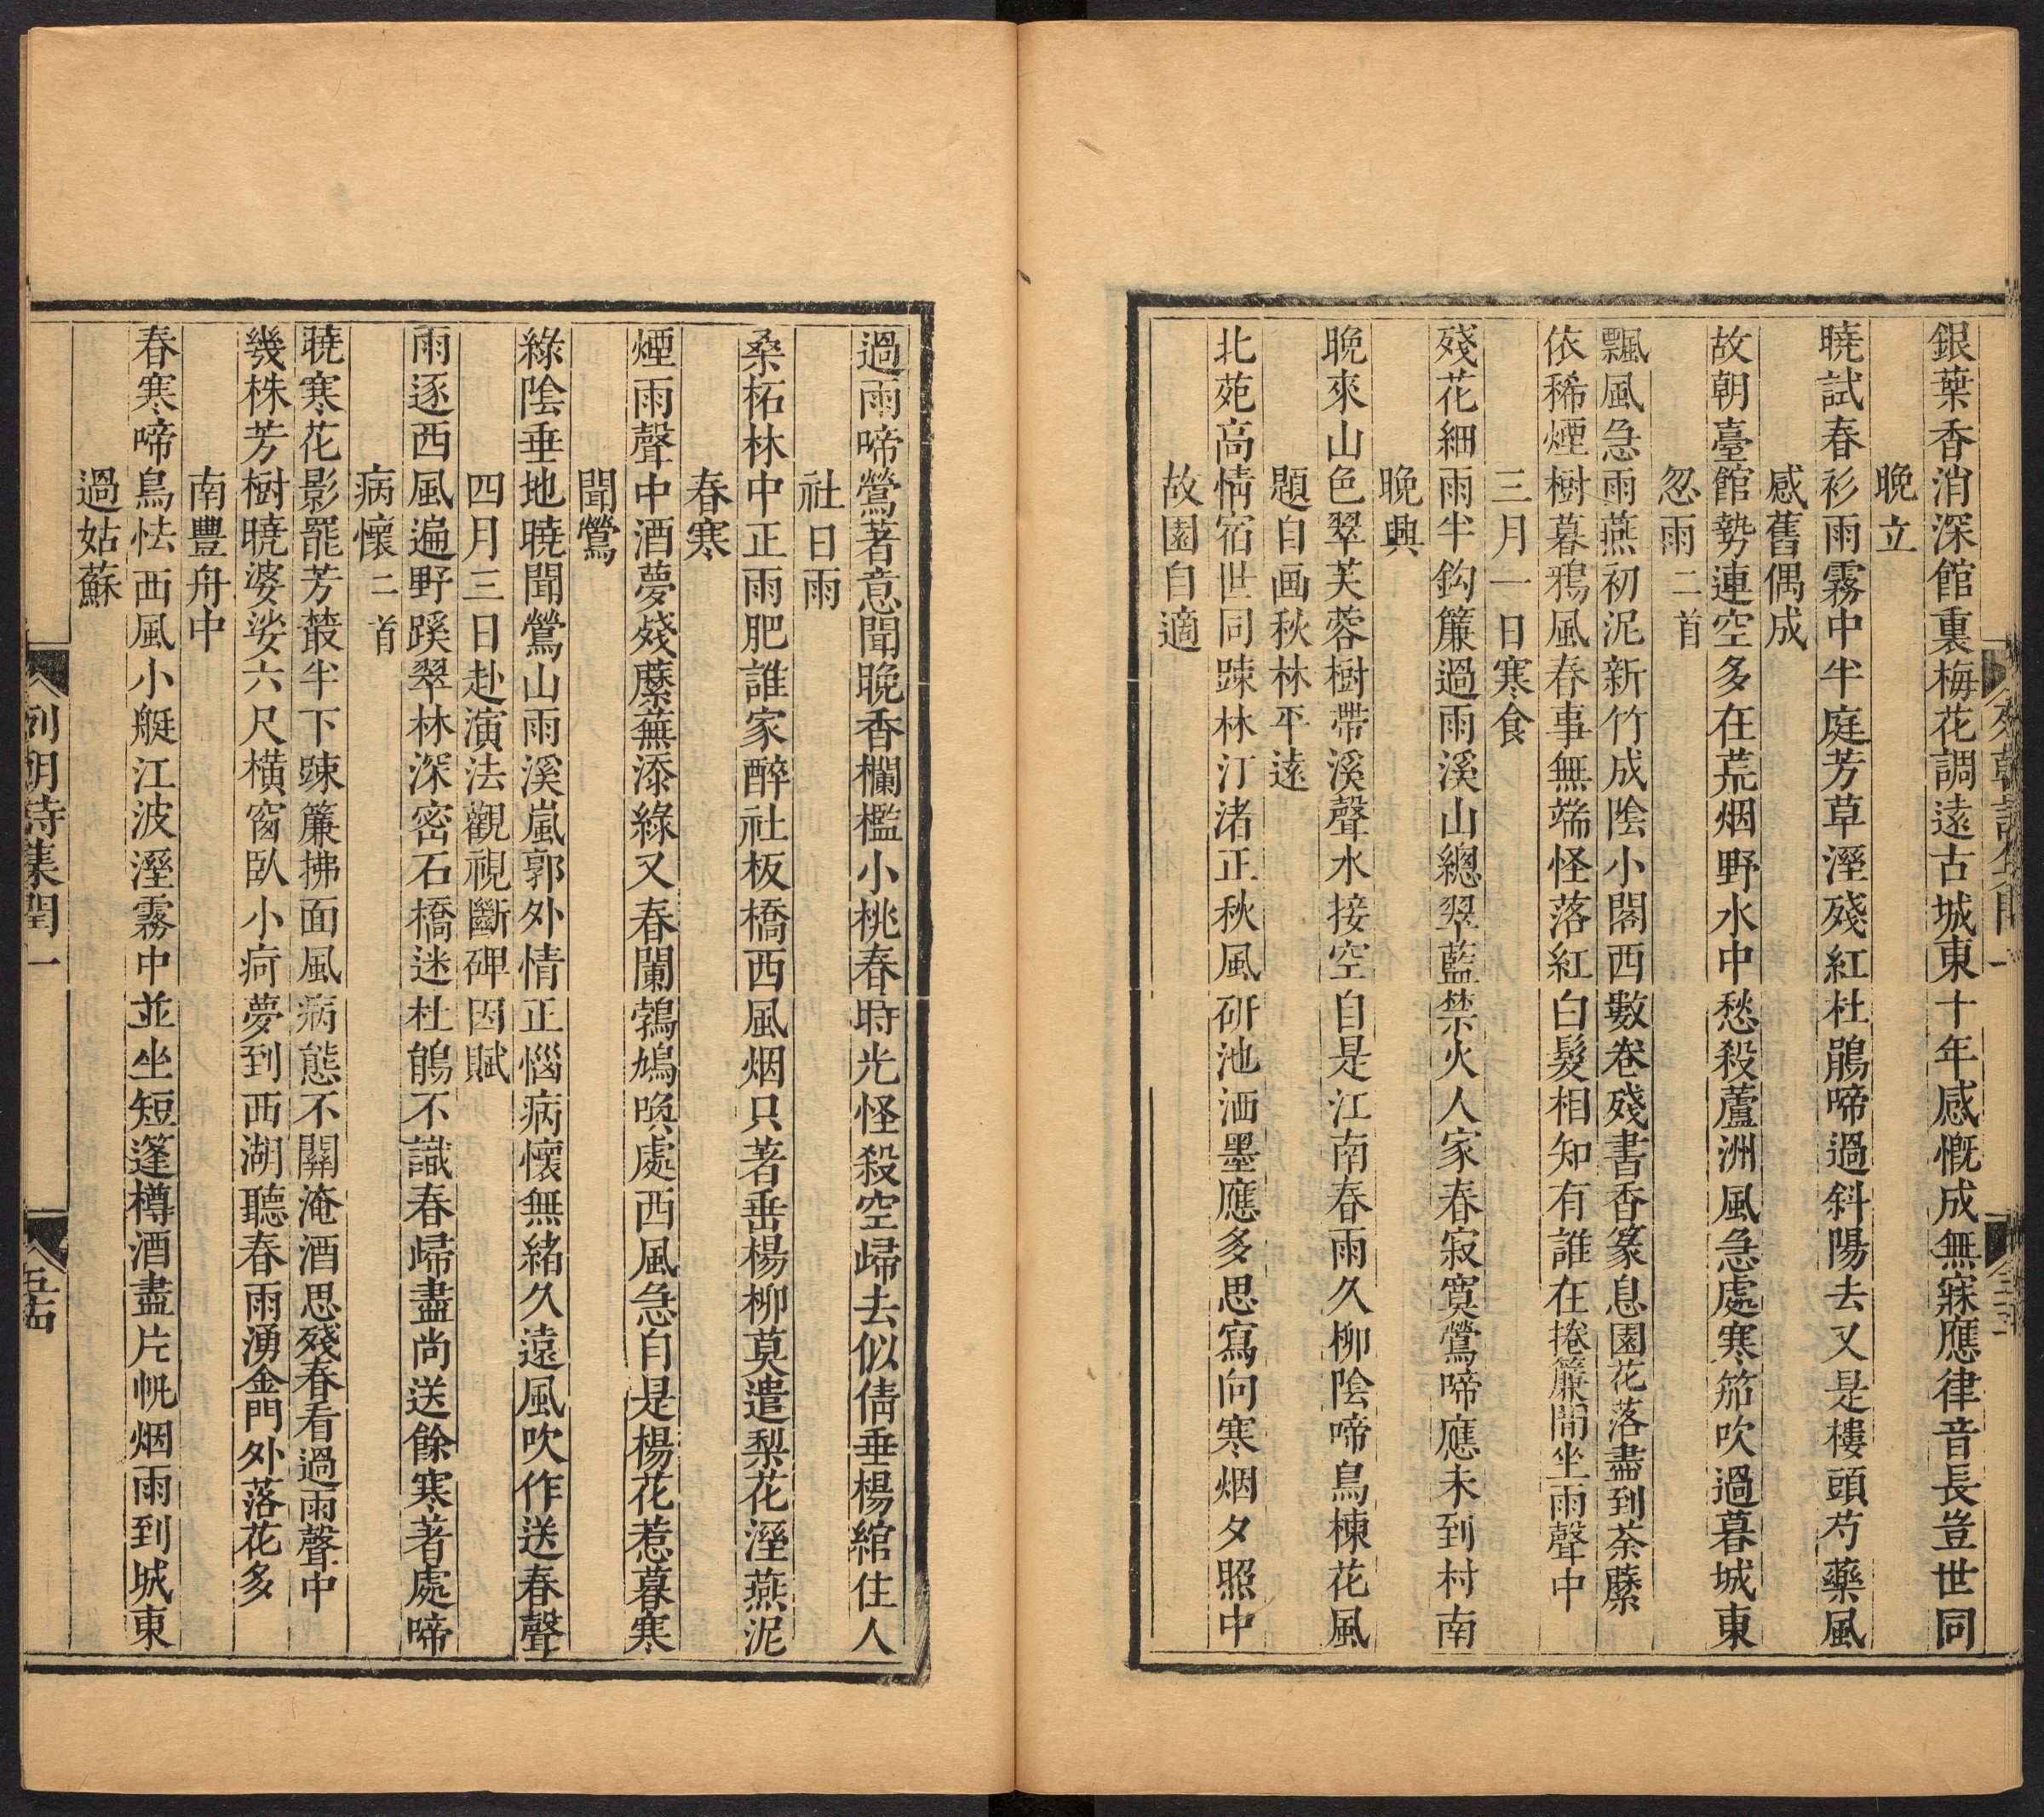 銀葉香消深館裏梅花調遠古城東十年感慨成無寐應律音長豈世同
晚立
曉試春衫雨霧中半庭芳草溼殘紅杜鵑啼過斜陽去又是樓頭芍藥風
感舊偶成
故朝臺館勢連空多在荒烟野水中愁殺蘆洲風急處寒笳吹過暮城東
忽雨二首
飄風急雨燕初泥新竹成陰小閣西數卷殘書香篆息園花落盡到荼蘼
依稀煙樹暮鴉風春事無端怪落紅白髮相知有誰在捲簾閒坐雨聲中
三月一日寒食
殘花細雨半鈎簾過雨溪山總翠藍禁火人家春寂寞鶯啼應未到村南
晚興
晚來山色翠芙蓉樹帶溪聲水接空自是江南春雨久柳陰啼鳥楝花風
題自画秋林平遠
北苑高情宿世同踈林汀渚正秋風研池洒墨應多思寫向寒烟夕照中
故園自適
過雨啼鶯著意聞晚香欄檻小桃春時光怪殺空歸去似倩垂楊綰住人
社日雨
桑柘林中正雨肥誰家醉社板橋西風烟只著垂楊柳莫遣梨花溼燕泥
春寒
煙雨聲中酒夢殘蘼蕪添綠又春闌鵓鳩喚處西風急自是楊花惹暮寒
聞鶯
綠陰垂地曉聞鶯山雨溪嵐郭外情正惱病懷無緒久遠風吹作送春聲
四月三日赴演法觀視斷碑因賦
雨逐西風遍野蹊翠林深密石橋迷杜鵑不識春歸盡尚送餘寒著處啼
病懷二首
曉寒花影罷芳叢半下踈簾拂面風病態不關淹酒思殘春看過雨聲中
幾株芳樹曉婆娑六尺橫窗臥小疴夢到西湖聽春雨湧金門外落花多
南豐舟中
春寒啼鳥怯西風小艇江波溼霧中並坐短篷樽酒盡片帆烟雨到城東
過姑蘇
列朝詩集閏一
五十四